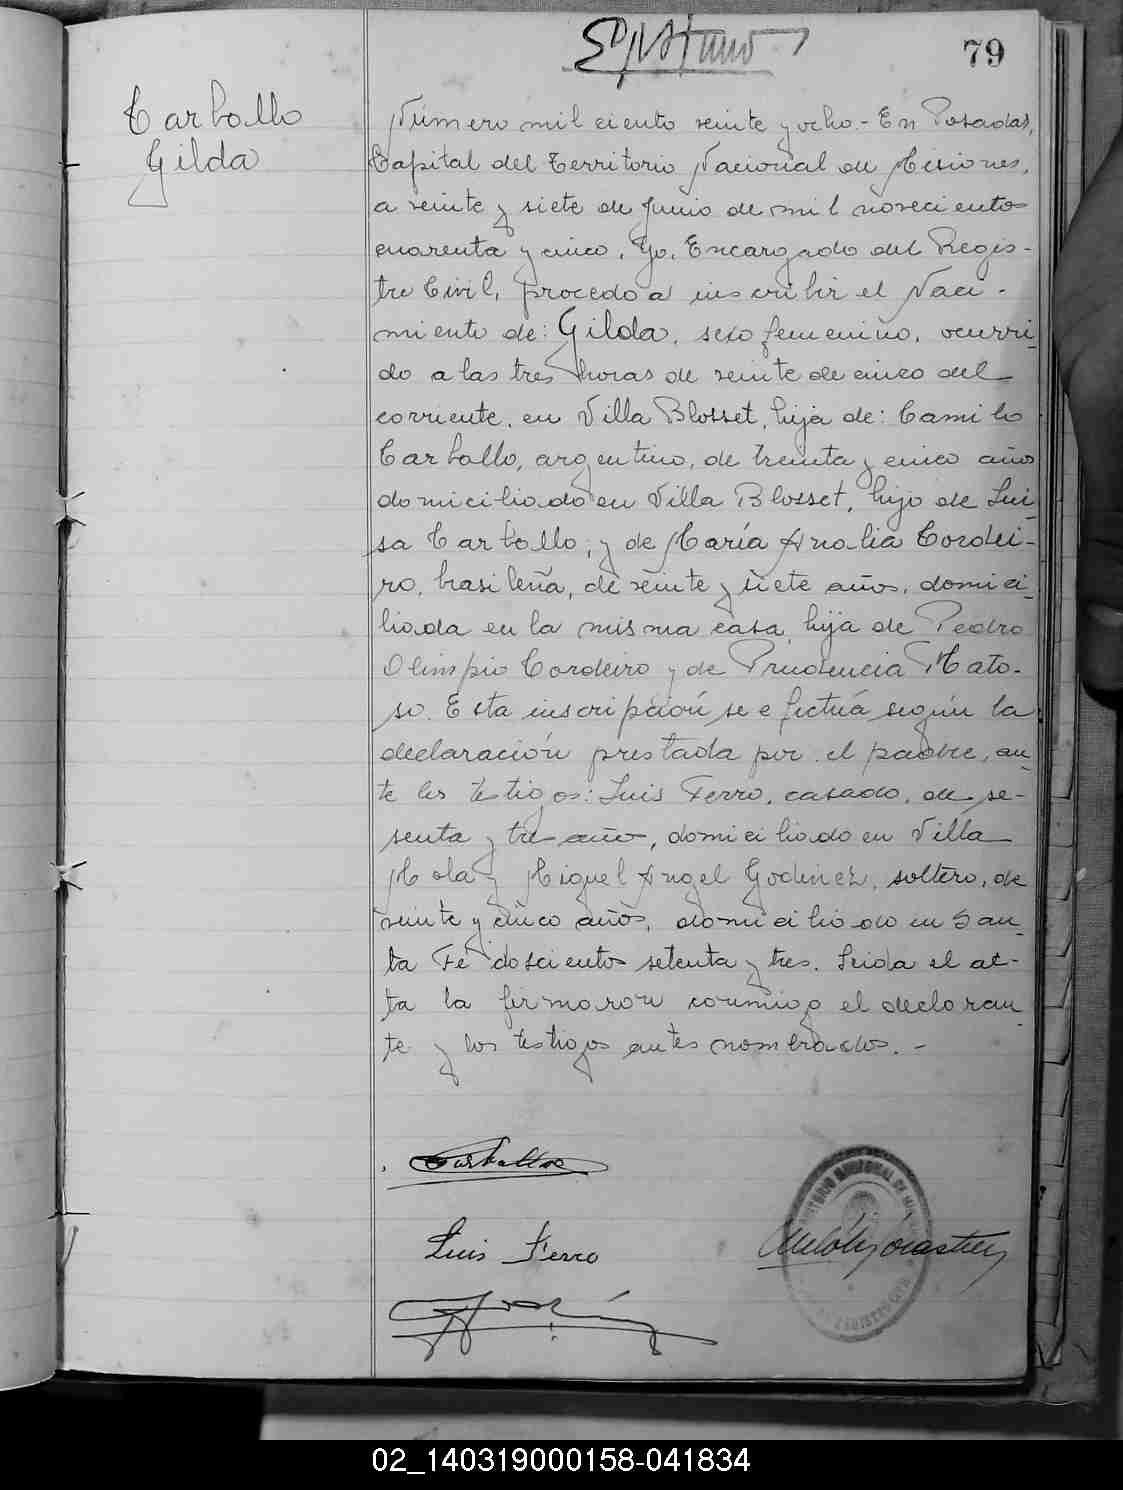 79
Carballo
Gilda
Número mil ciento veinte y ocho.- En Posadas,
Capital del Territorio Nacional de Misiones,
a veinte y siete de Junio de mil novecientos
cuarenta y cinco, Yo, Encargado del Regis-
tro Civil, procedo a inscribir el Naci-
miento de: Gilda, sexo femenino, ocurri-
do a las tres horas de veinte de cinco del
corriente, en Villa Blosset, hija de: Camilo
Carballo, argentino, de treinta y cinco años
domiciliado en Villa Blosset, hijo de Lui-
sa Carballo; y de María Analia Cordei-
ro, brasileña, de veinte y siete años, domici-
liada en la misma casa, hija de Pedro
Olimpio Cordeiro y de Prudencia Mato-
so. Esta inscripción se efectúa según la
declaración prestada por el padre, an-
te los testigos: Luis Ferro, casado, de se-
senta y tres años, domiciliado en Villa
Mola y Miguel Angel Godinez, soltero, de
veinte y cinco años, domiciliado en San-
ta Fé doscientos setenta y tres. Leida el ac-
ta la firmaron conmigo el declaran-
te y los testigos antes nombrados.-
Carballo
Luis Ferro
02_140319000158-041834